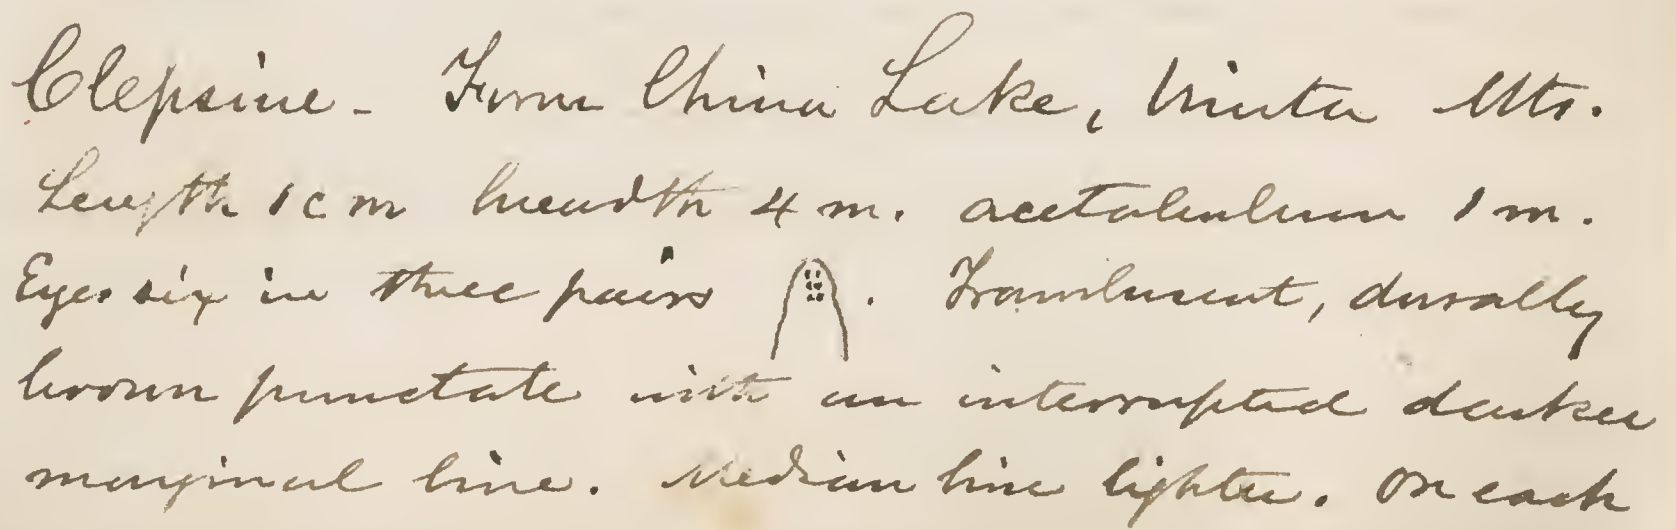 Clepsine – From China Lake, Uinta Mts.
Length 1 c m breadth 4 m. acetabulum 1 m.
Eyes six in three pairs . Translucent, dorsally
brown punctate with an interrupted darker
marginal line. Median line lighter. On each